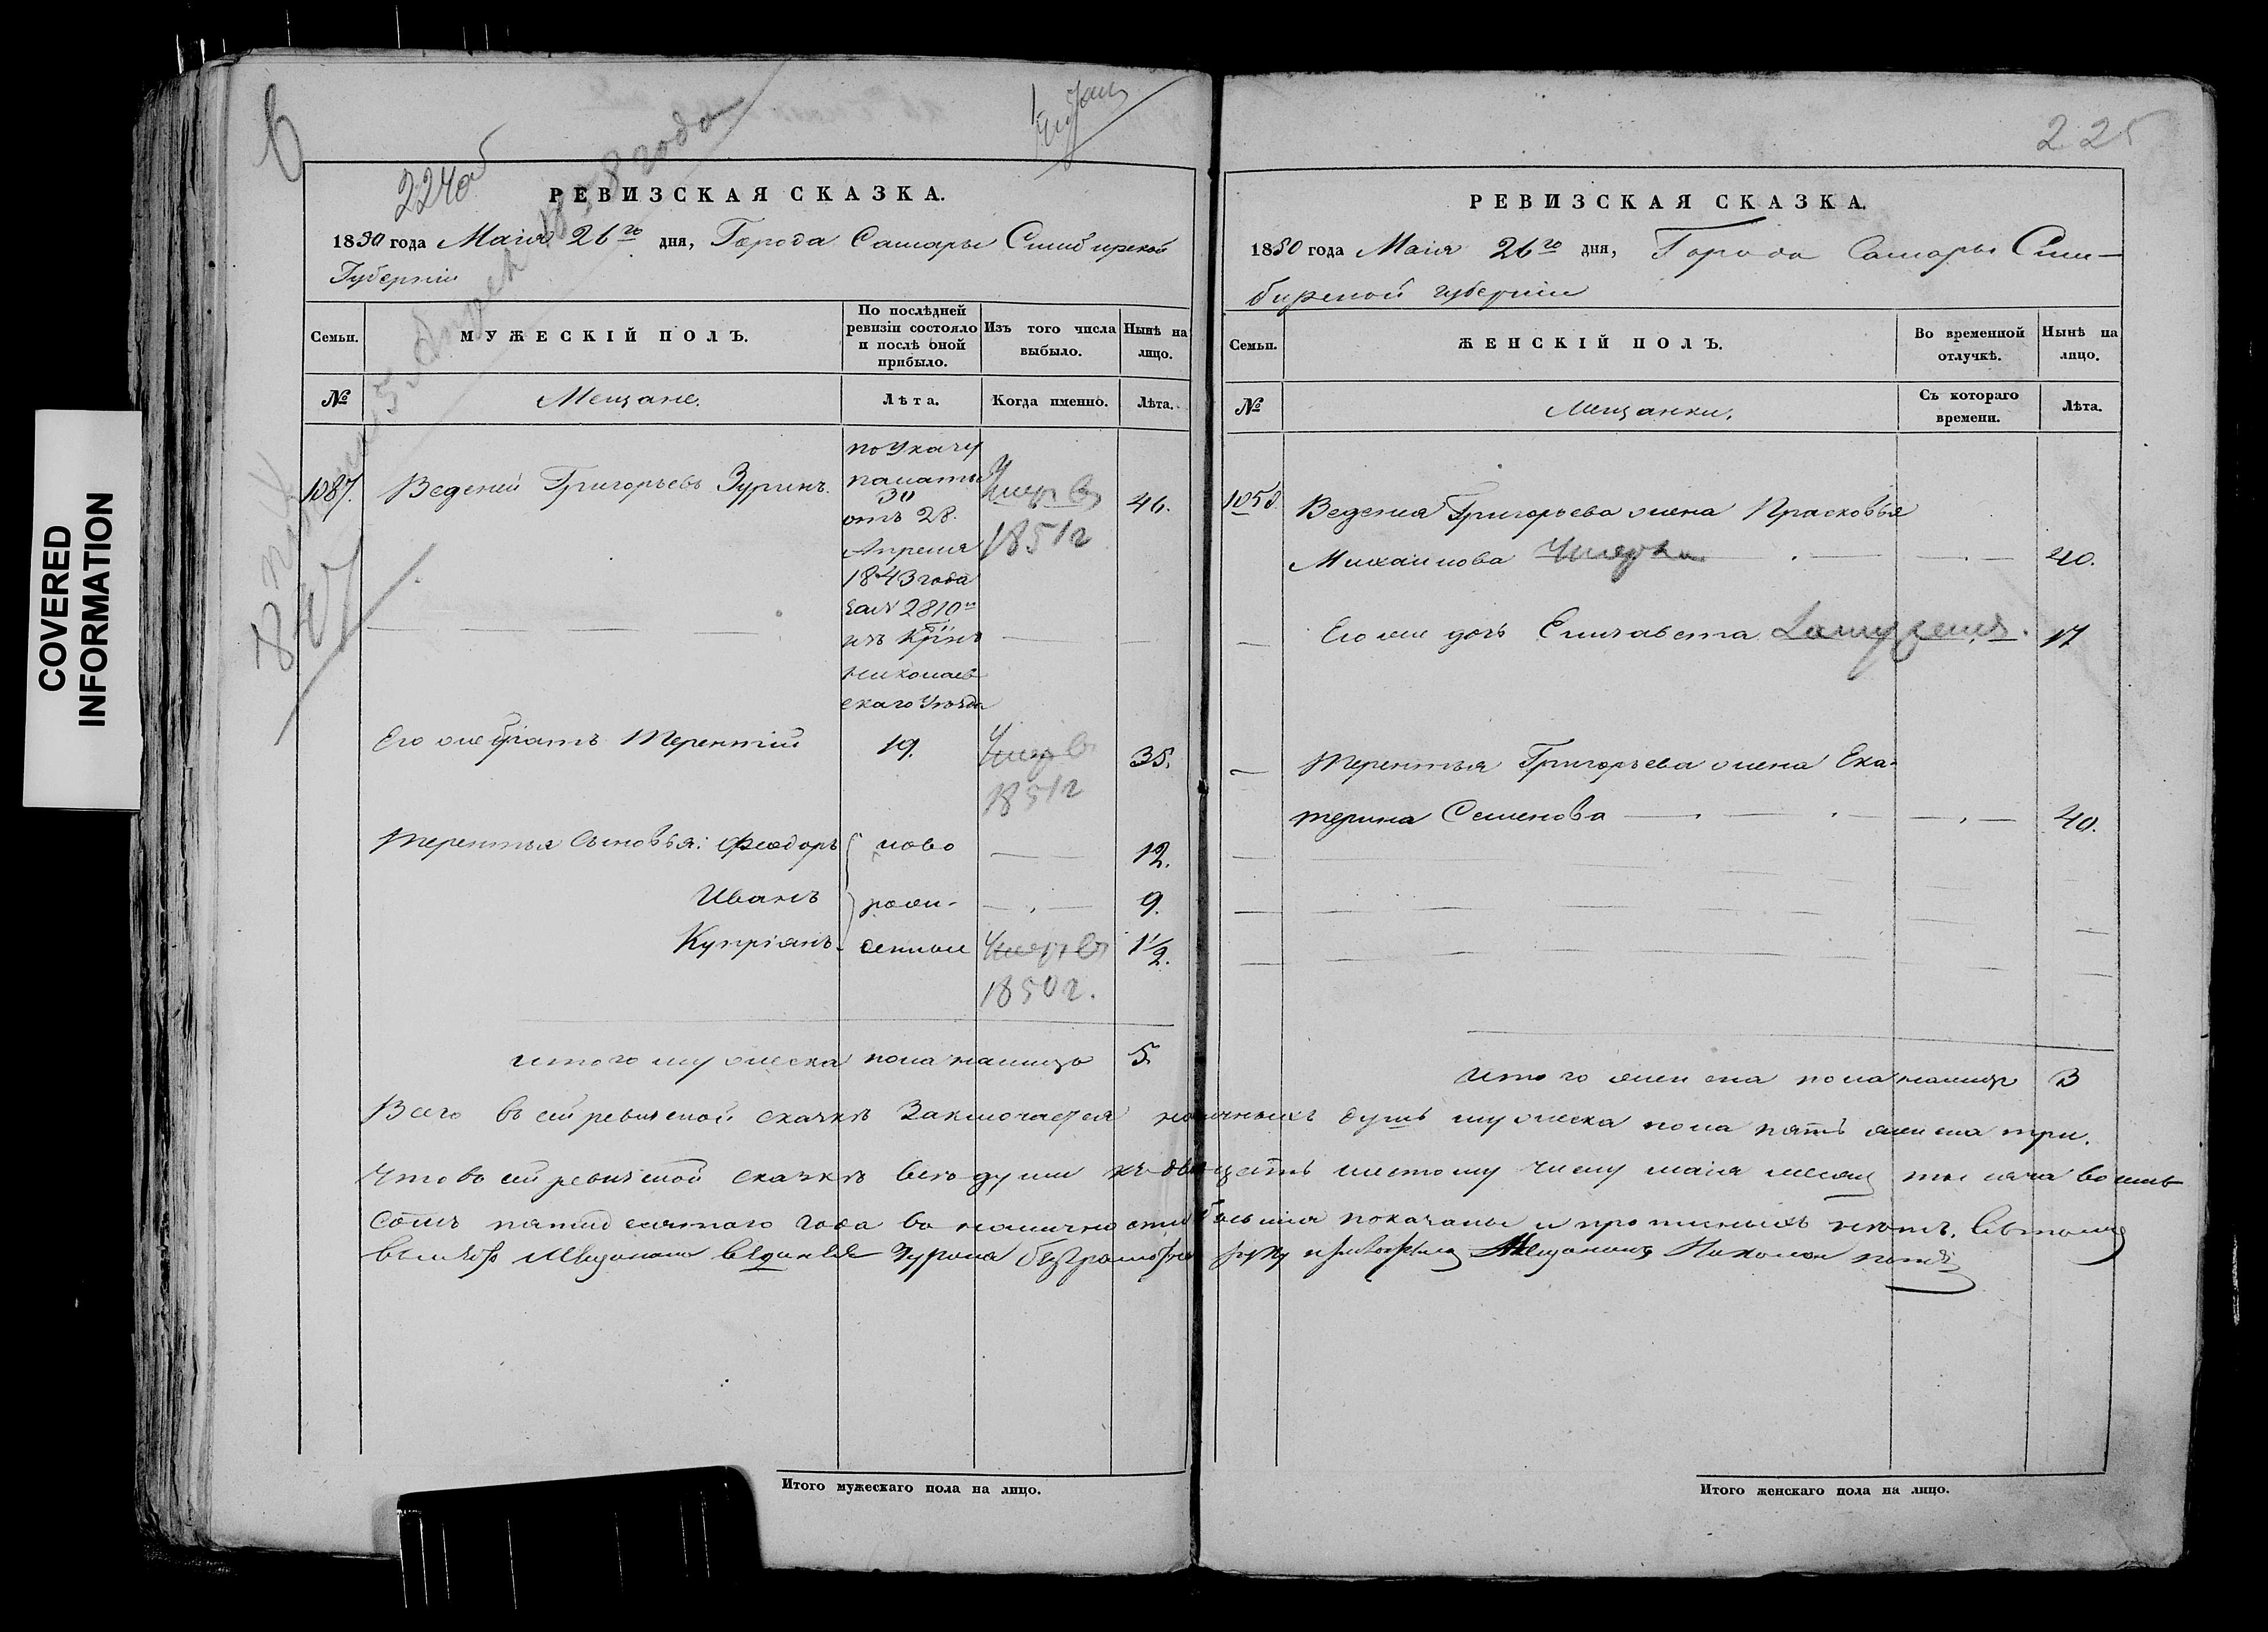 COVERED
INFORMATION
6
224об
РЕВИЗСКАЯ СКАЗКА.
1850 года Маія 26го дня, Города Самары Симбирской
Губерніи
Семьи.
МУЖЕСКІЙ ПОЛЪ.
По послѣдней
ревизіи состояло
и послѣ оной
прибыло.
Изъ того числа
выбыло.
Нынѣ на
лицо.
№
Мещане.
Лѣта.
Когда именно.
Лѣта.
1087.
Веденей Григорьевъ Зуринъ.
по Указу
палаты
30
отъ 28.
Апреля
1843 года
за № 2810м
изъ
Николаев
скаго Уезда
Умеръ въ
1851 г
46.
Его же братъ Терентій
19.
Умеръ въ
1851 г
35.
Терентья сыновья: Феодоръ
ново
12.
Иванъ
рож-
9.
Купріянъ
денные
Умеръ въ
1850 г.
1 1/2.
итого мужеска пола налицо 5.
225
РЕВИЗСКАЯ СКАЗКА.
1850 года Маія 26го дня, Города Самары Сим-
бирской губерніи
Семьи.
ЖЕНСКІЙ ПОЛЪ.
Во временной
отлучкѣ.
Нынѣ на
лицо.
№
Мещанки.
Съ котораго
времени.
Лѣта.
1058.
Веденея Григорьева жена Прасковья
Михаилова Умерла 40.
Его же дочь Елизавета Замужемъ. 17
Терентья Григорьева жена Ека-
терина Семенова 40.
Итого женска пола налицо 3
Всего въ сей ревизской сказкѣ Заключается наличныхъ душъ мужеска пола пять женска три.
Что въ сей ревизской сказкѣ всѣ души къ двадцать шестому числу маія месяца тысяча восемь
сотъ пятидесятаго года въ наличности бывшія показаны и прописныхъ нетъ. Въ томъ
Мещанинъ Николай
Итого мужескаго пола на лицо.
Итого женскаго пола на лицо.